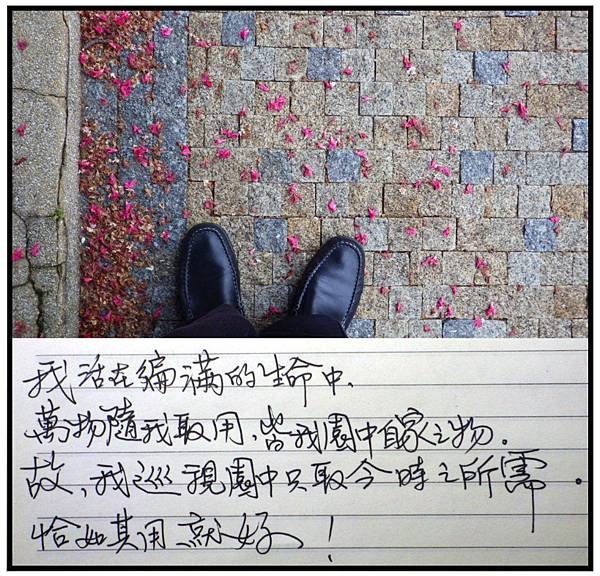 我活在編滿的生命中、
萬物隨我取用、皆我園中自家之物。
故、我巡視園中只取今時之所需。
恰如其用就好！